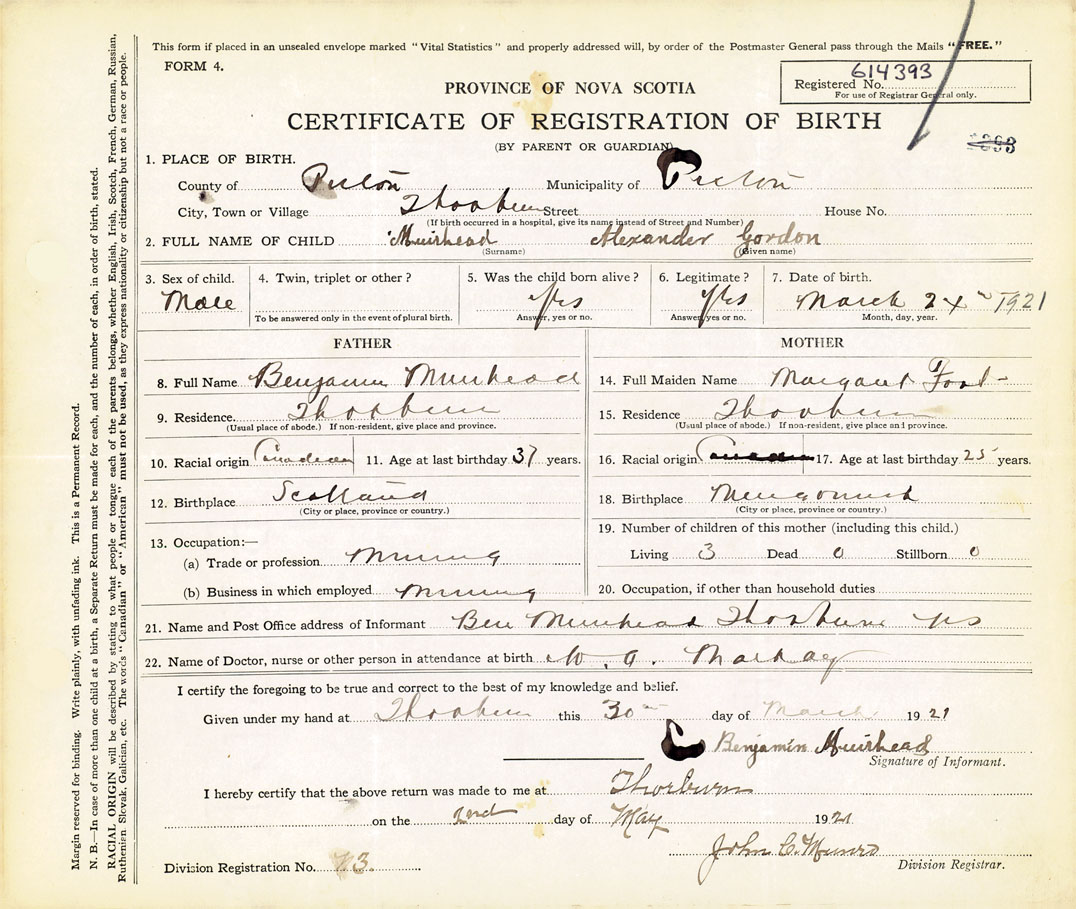 This form if placed in an unsealed envelope marked "Vital Statistics" and properly addressed will, by order of the Postmaster General pass through the Mails "FREE."
FORM 4.
614393
Registered No.
For use of Registrar General only.
PROVINCE OF NOVA SCOTIA
CERTIFICATE OF REGISTRATION OF BIRTH
(BY PARENT OR GUARDIAN)
1. PLACE OF BIRTH.
County of Pictou Municipality of Pictou
City, Town or Village Thorburn Street House No.
(If birth occurred in a hospital, give its name instead of Street and Number)
2. FULL NAME OF CHILD Muirhead Alexander Gordon
(Surname) (Given name)
3. Sex of child. 4. Twin, triplet or other? 5. Was the child born alive? 6. Legitimate? 7. Date of birth.
Male Yes Yes March 1921
To be answered only in the event of plural birth. Answer, yes or no. Answer, yes or no. Month, day, year.
FATHER MOTHER
8. Full Name Benjamin Muirhead
9. Residence Thorburn
(Usual place of abode.) If non-resident, give place and province.
10. Racial origin Canadian 11. Age at last birthday 37 years.
12. Birthplace Scotland
(City or place, province or country.)
13. Occupation:—
(a) Trade or profession Mining
(b) Business in which employed Mining
14. Full Maiden Name Margaret
15. Residence Thorburn
(Usual place of abode.) If non-resident, give place and province.
16. Racial origin Canadian 17. Age at last birthday 25 years.
18. Birthplace Merigomish
(City or place, province or country.)
19. Number of children of this mother (including this child.)
Living 3 Dead 0 Stillborn 0
20. Occupation, if other than household duties
21. Name and Post Office address of Informant Ben Muirhead Thorburn NS
22. Name of Doctor, nurse or other person in attendance at birth W. A. MacKay
I certify the foregoing to be true and correct to the best of my knowledge and belief.
Given under my hand at Thorburn this 30 day of March 1921
Benjamin Muirhead
Signature of Informant.
I hereby certify that the above return was made to me at Thorburn
on the 2nd day of May 1921
John C. Munro
Division Registration No. 73. Division Registrar.
Margin reserved for binding. Write plainly, with unfading ink. This is a Permanent Record.
N. B.—In case of more than one child at a birth, a Separate Return must be made for each, and the number of each, in order of birth, stated.
RACIAL ORIGIN will be described by stating to what people or tongue each of the parents belongs, whether English, Irish, Scotch, French, German, Russian,
Ruthenian, Slovak, Galician, etc. The words "Canadian" or "American" must not be used, as they express nationality or citizenship but not a race or people.